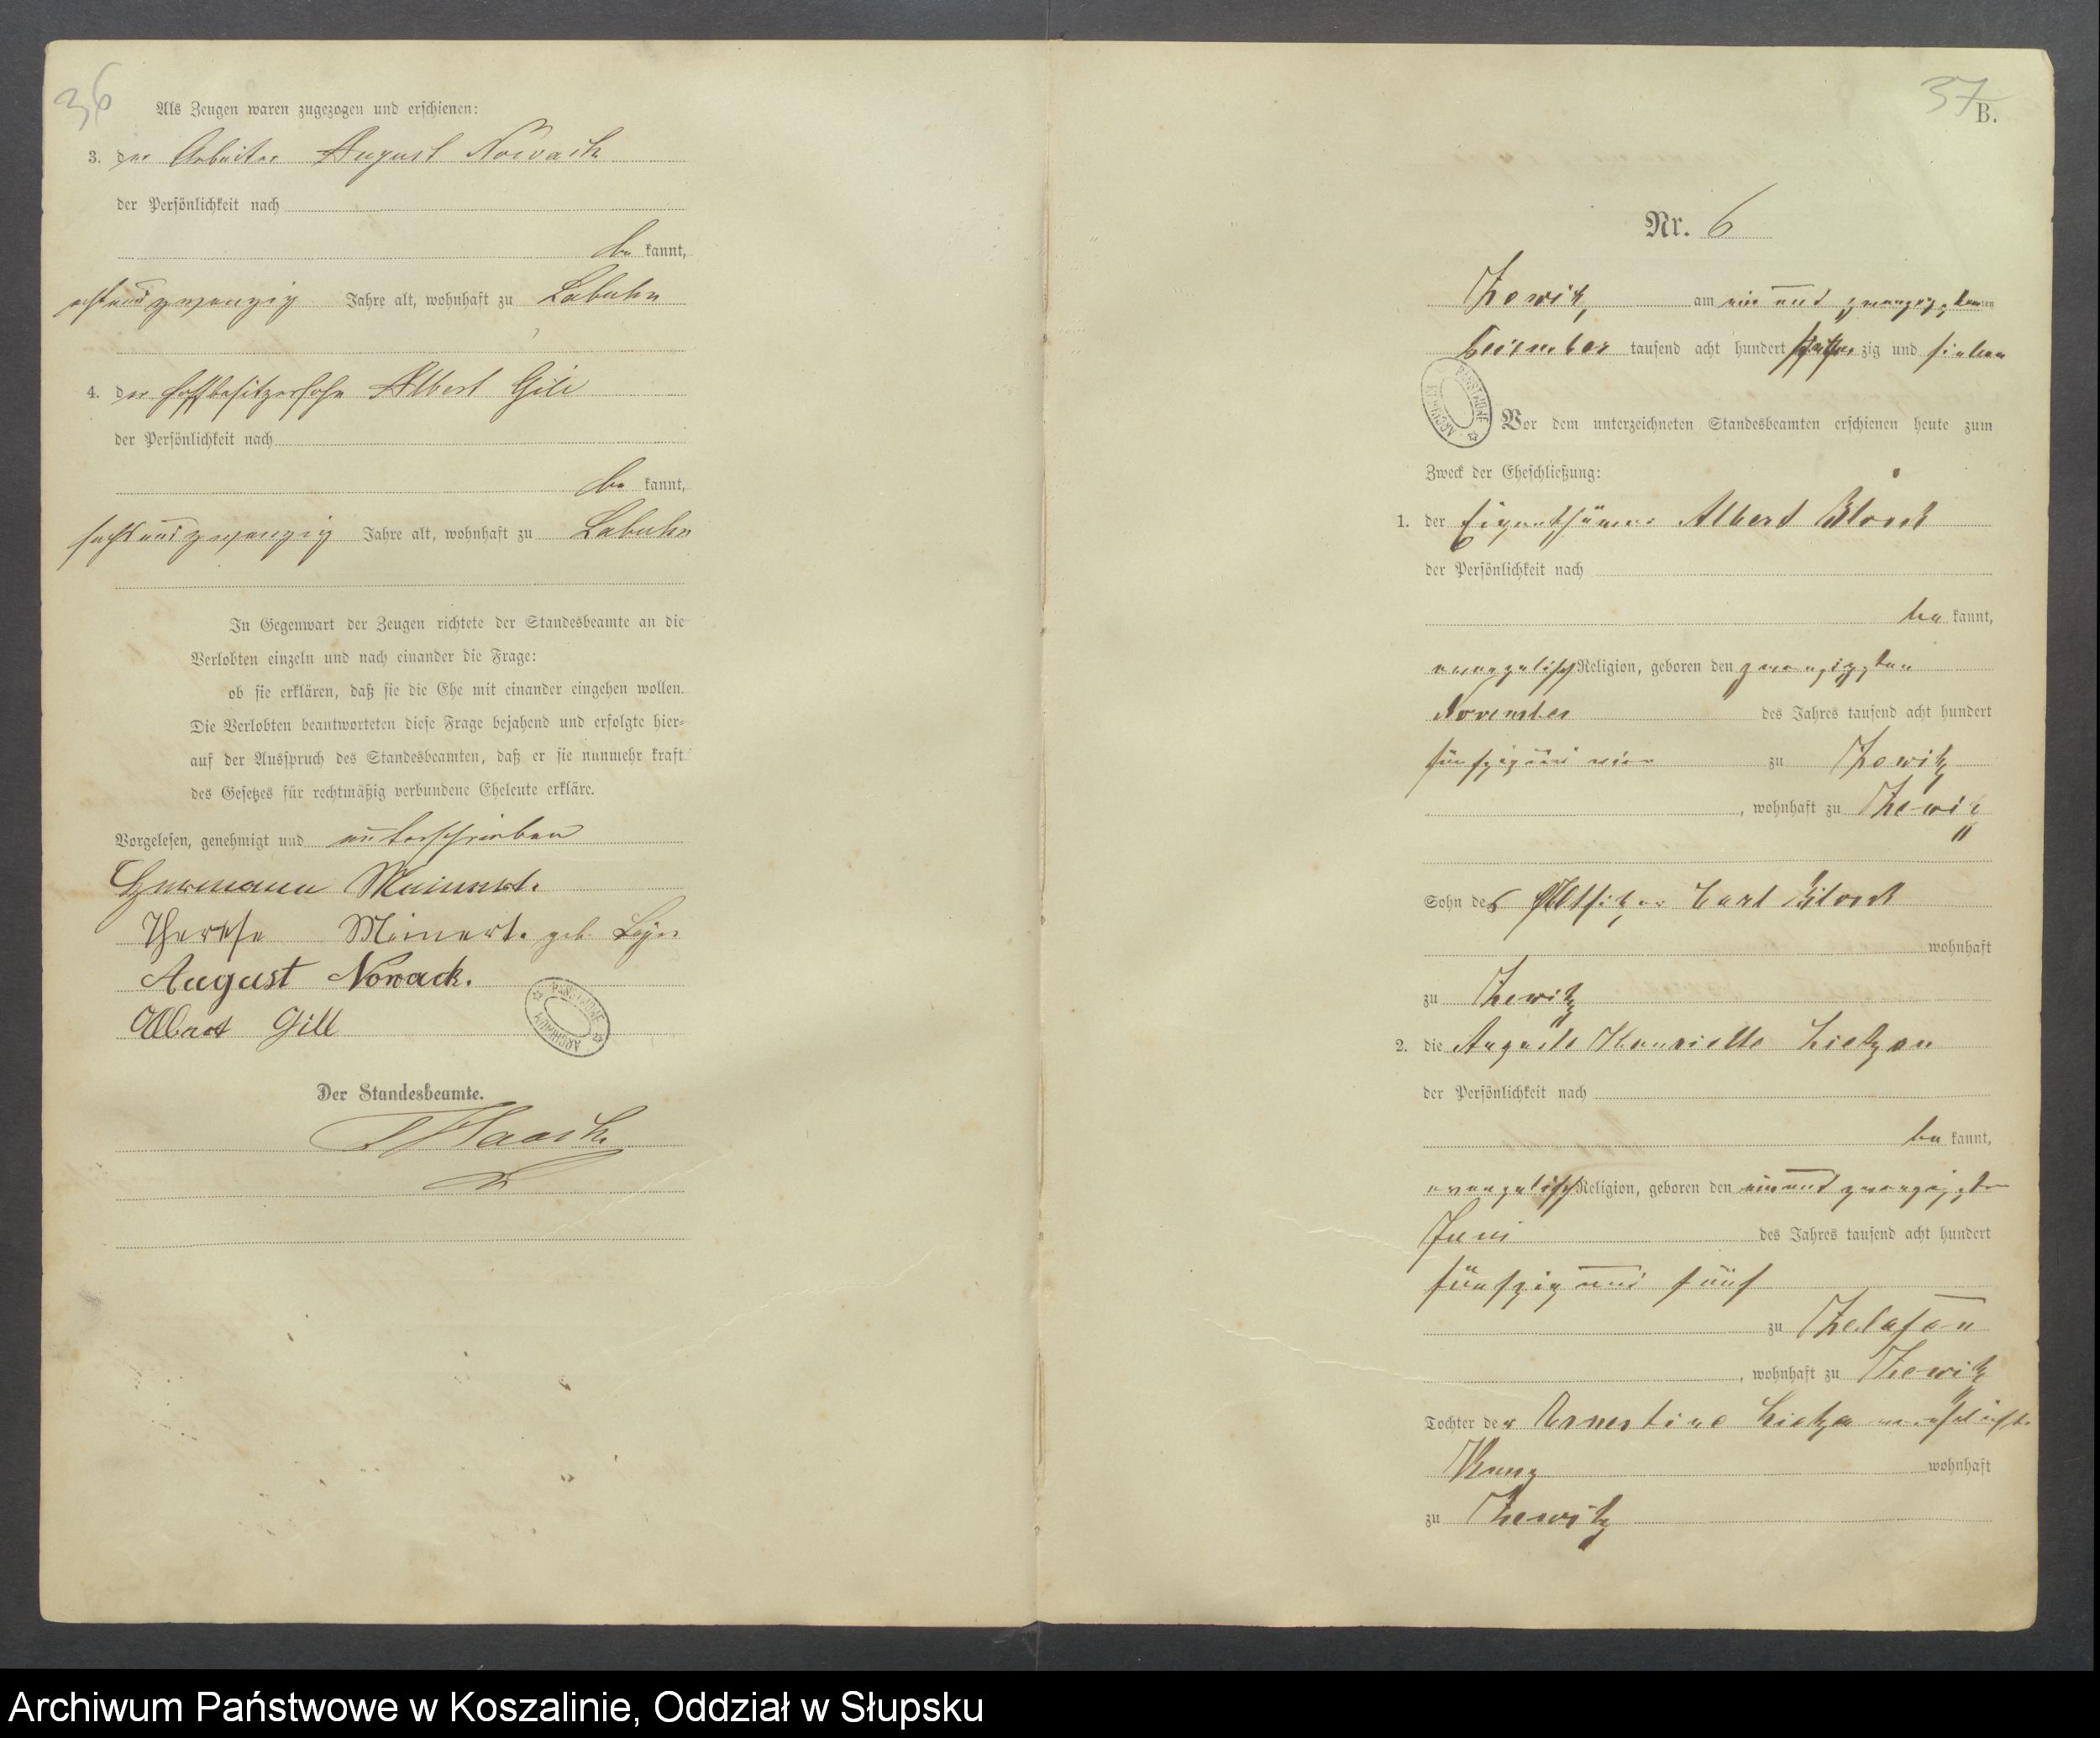 36
Als Zeugen waren zugezogen und erschienen:
3. der Arbeiter August Nowack
der Persönlichkeit nach
be kannt,
achtundzwanzig Jahre alt, wohnhaft zu Labuhn
4. der Hofbesitzersohn Albert Gill
der Persönlichkeit nach
be kannt,
sechsundzwanzig Jahre alt, wohnhaft zu Labuhn
In Gegenwart der Zeugen richtete der Standesbeamte an die
Verlobten einzeln und nach einander die Frage:
ob sie erklären, daß sie die Ehe mit einander eingehen wollen.
Die Verlobten beantworteten diese Frage bejahend und erfolgte hier-
auf der Ausspruch des Standesbeamten, daß er sie nunmehr kraft
des Gesetzes für rechtmäßig verbundene Eheleute erkläre.
Vorgelesen, genehmigt und unterschrieben
Hermann Meinert.
Therese Meinert. geb.
August Nowack.
Albert Gill
ARCHIWUM PAŃSTWOWE
Der Standesbeamte.
37
B.
Nr. 6
Zewitz am ein und zwanzigsten
Dezember tausend acht hundert siebenzig und sieben
ARCHIWUM PAŃSTWOWE
Vor dem unterzeichneten Standesbeamten erschienen heute zum
Zweck der Eheschließung:
1. der Eigenthümer Albert Block
der Persönlichkeit nach
be kannt,
evangelisch Religion, geboren den zwanzigsten
November des Jahres tausend acht hundert
fünfzig und vier zu Zewitz
, wohnhaft zu Zewitz
Sohn des Altsitzer Carl Block
wohnhaft
zu Zewitz
2. die Auguste Henriette Lietzau
der Persönlichkeit nach
be kannt,
evangelisch Religion, geboren den ein und zwanzigsten
Juni des Jahres tausend acht hundert
fünfzig und fünf
zu Zelasen
, wohnhaft zu Zewitz
Tochter der Ernestine Lietza verehelichte
wohnhaft
zu Zewitz
Archiwum Państwowe w Koszalinie, Oddział w Słupsku